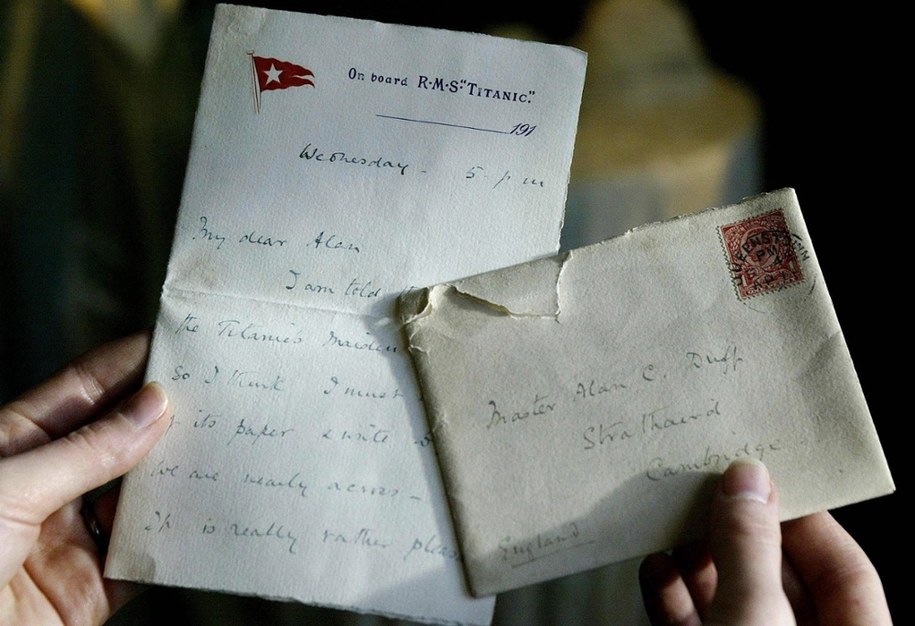 On board R·M·S·"TITANIC."
191
Wednesday - 5 p m
My dear Alan
I am told
the Titanic's Maiden
So I think I must
its paper & write
We are nearly across -
It is really rather pleas
Master Alan C. Duff
Strathaird
Cambridge
England